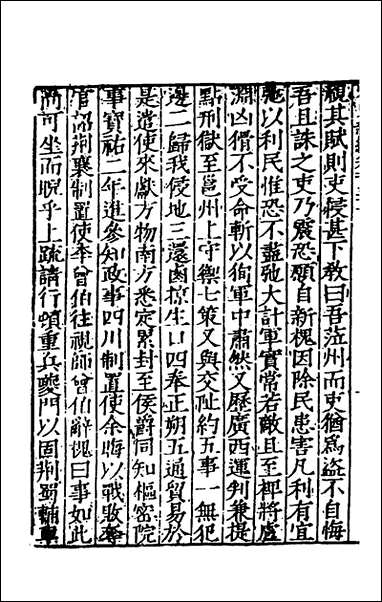 視其賦則吏侵甚下教曰吾蒞州而吏猶爲盜不自悔
吾且誅之吏乃震恐願自新槐因除民患害凡利有宜
弛以利民惟恐不盡弛大計軍實常若敵且至裨將盧
淵凶猾不受命斬以徇軍中肅然又歷廣西運判兼提
點刑獄至邕州上守禦七策又與交阯約五事一無犯
邊二歸我侵地三還鹵掠生口四奉正朔五通貿易於
是遣使來獻方物南方悉定累封至侯爵同知樞密院
事寶祐二年進參知政事四川制置使余晦以戰敗奪
官詔荆襄制置使李曾伯往視師曾伯辭槐曰事如此
尚可坐而睨乎上疏請行頓重兵夔門以固荆蜀輔車